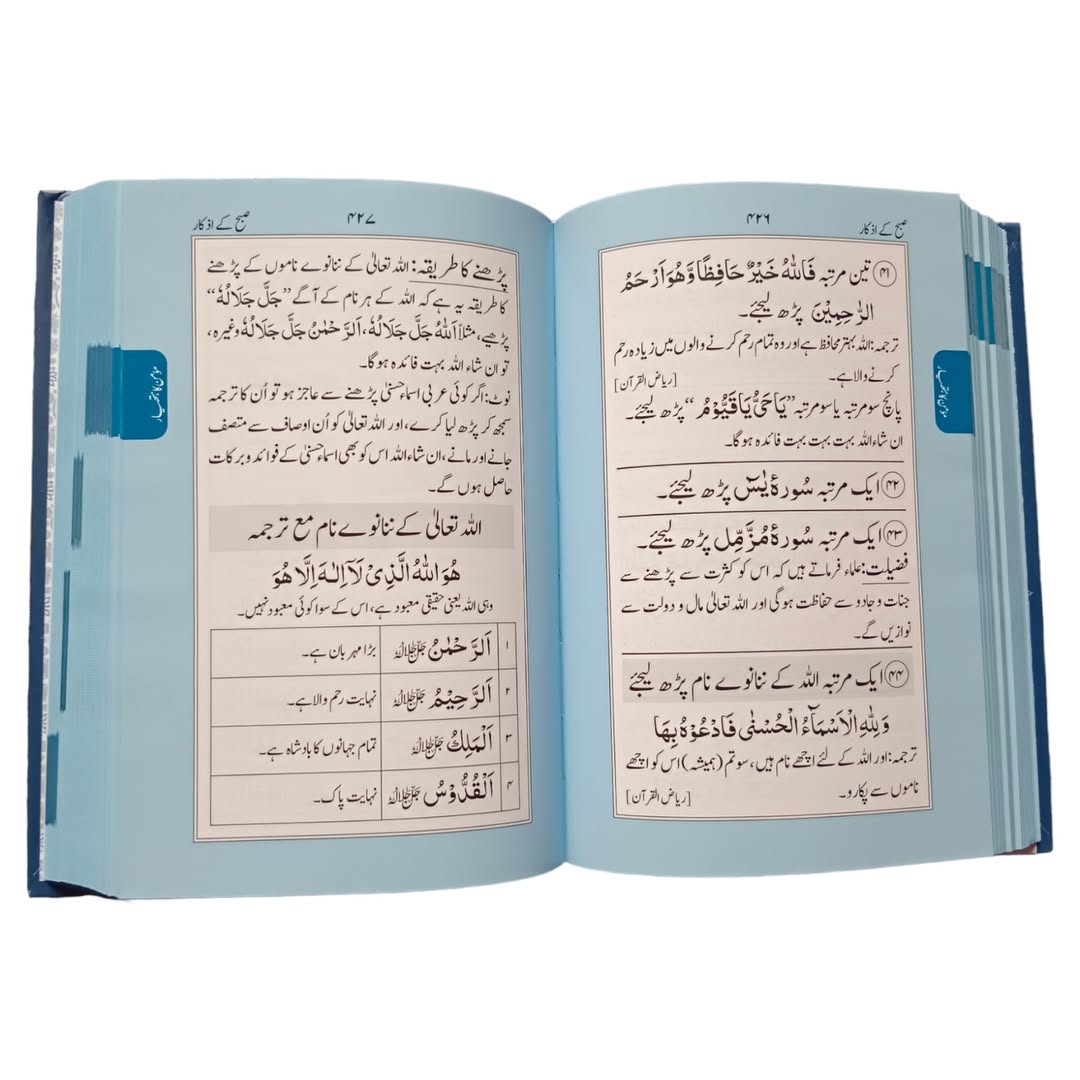 صبح کے اذکار
۴۲۶
۴۱ تین مرتبہ فَاللّٰهُ خَيْرٌ حَافِظًا وَّهُوَ اَرْحَمُ
الرّٰحِمِيْنَ پڑھ لیجئے۔
ترجمہ: اللہ بہتر محافظ ہے اور وہ تمام رحم کرنے والوں میں زیادہ رحم
کرنے والا ہے۔ [ریاض القرآن]
پانچ سو مرتبہ یا سو مرتبہ ”يَا حَيُّ يَا قَيُّوْمُ“ پڑھ لیجئے۔
ان شاء اللہ بہت بہت بہت فائدہ ہوگا۔
۴۲ ایک مرتبہ سُورۂ یٰسٓ پڑھ لیجئے۔
۴۳ ایک مرتبہ سُورۂ مُزَّمِّل پڑھ لیجئے۔
فضیلت: علماء فرماتے ہیں کہ اس کو کثرت سے پڑھنے سے
جنات وجادو سے حفاظت ہوگی اور اللہ تعالیٰ مال و دولت سے
نوازیں گے۔
۴۴ ایک مرتبہ اللہ کے ننانوے نام پڑھ لیجئے
وَلِلّٰهِ الْاَسْمَآءُ الْحُسْنٰى فَادْعُوْهُ بِهَا
ترجمہ: اور اللہ کے لئے اچھے نام ہیں، سو تم (ہمیشہ) اس کو اچھے
ناموں سے پکارو۔ [ریاض القرآن]
۴۲۷
صبح کے اذکار
پڑھنے کا طریقہ: اللہ تعالیٰ کے ننانوے ناموں کے پڑھنے
کا طریقہ یہ ہے کہ اللہ کے ہر نام کے آگے ”جَلَّ جَلَالُهٗ“
پڑھیے، مثلاً اَللّٰهُ جَلَّ جَلَالُهٗ، اَلرَّحْمٰنُ جَلَّ جَلَالُهٗ وغیرہ،
تو ان شاء اللہ بہت فائدہ ہوگا۔
نوٹ: اگر کوئی عربی اسماءِ حسنیٰ پڑھنے سے عاجز ہو تو اُن کا ترجمہ
سمجھ کر پڑھ لیا کرے، اور اللہ تعالیٰ کو اُن اوصاف سے متصف
جانے اور مانے، ان شاء اللہ اس کو بھی اسماءِ حسنیٰ کے فوائد و برکات
حاصل ہوں گے۔
اللہ تعالیٰ کے ننانوے نام مع ترجمہ
هُوَ اللّٰهُ الَّذِيْ لَآ اِلٰهَ اِلَّا هُوَ
وہی اللہ یعنی حقیقی معبود ہے، اس کے سوا کوئی معبود نہیں۔
۱ اَلرَّحْمٰنُ جَلَّ جَلَالُهٗ بڑا مہربان ہے۔
۲ اَلرَّحِيْمُ جَلَّ جَلَالُهٗ نہایت رحم والا ہے۔
۳ اَلْمَلِكُ جَلَّ جَلَالُهٗ تمام جہانوں کا بادشاہ ہے۔
۴ اَلْقُدُّوْسُ جَلَّ جَلَالُهٗ نہایت پاک۔
مؤمن کا ہتھیار